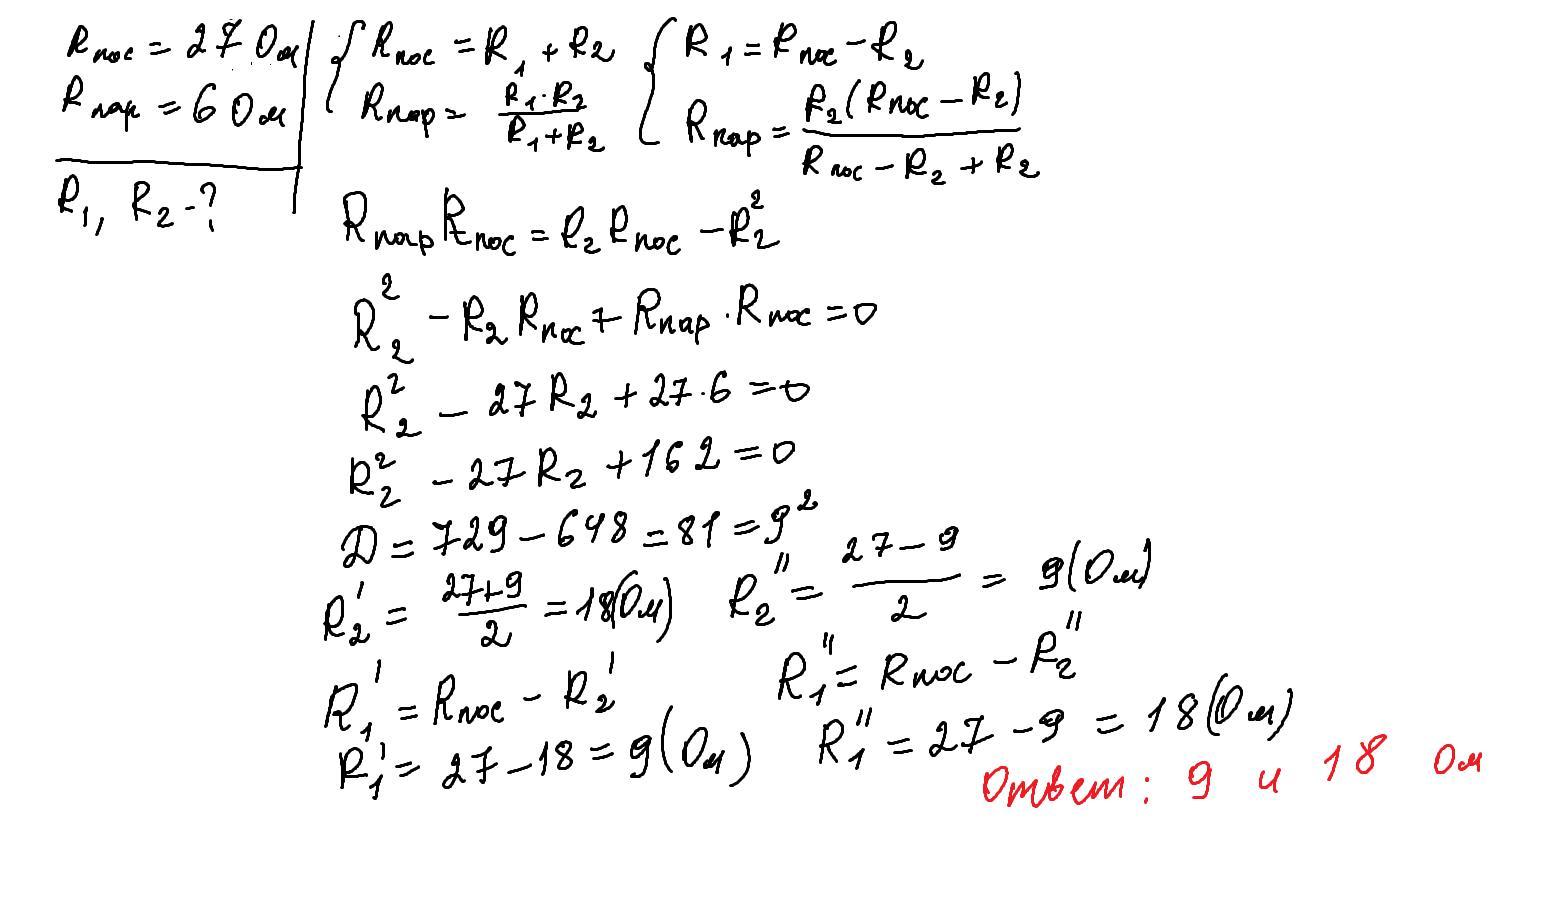 Rпос = 27 Ом
Rпар = 6 Ом
R₁, R₂ - ?
{ Rпос = R₁ + R₂
Rпар = R₁·R₂ / R₁+R₂
{ R₁ = Rпос – R₂
Rпар = R₂(Rпос – R₂) / Rпос – R₂ + R₂
Rпар Rпос = R₂ Rпос – R₂²
R₂² – R₂ Rпос + Rпар · Rпос = 0
R₂² – 27 R₂ + 27·6 = 0
R₂² – 27 R₂ + 162 = 0
D = 729 – 648 = 81 = 9²
R₂' = 27+9 / 2 = 18(Ом) R₂'' = 27 – 9 / 2 = 9(Ом)
R₁' = Rпос – R₂' R₁'' = Rпос – R₂''
R₁' = 27 – 18 = 9(Ом) R₁'' = 27 – 9 = 18(Ом)
Ответ: 9 и 18 Ом